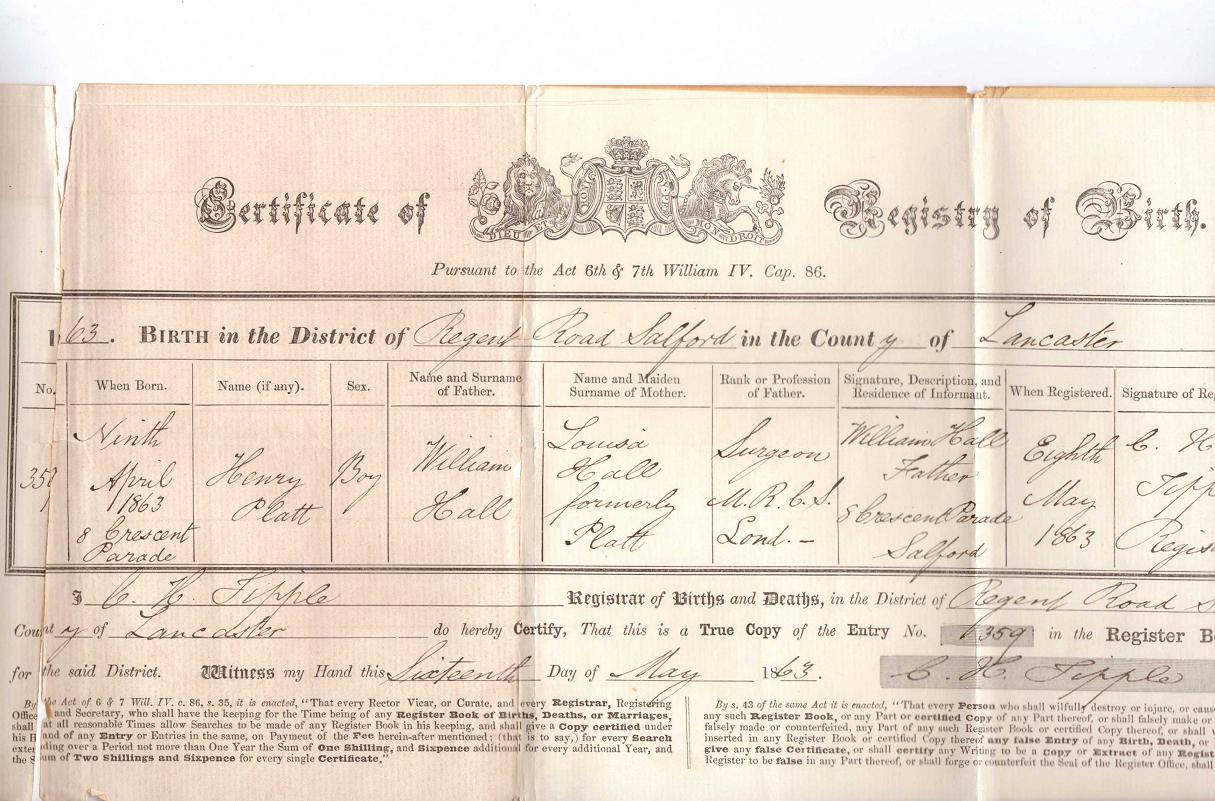 Certificate of Registry of Birth.
DIEU ET MON DROIT
Pursuant to the Act 6th & 7th William IV. Cap. 86.
63. BIRTH in the District of Regent Road Salford in the County of Lancaster
No.
When Born.
Name (if any).
Sex.
Name and Surname
of Father.
Name and Maiden
Surname of Mother.
Rank or Profession
of Father.
Signature, Description, and
Residence of Informant.
When Registered.
Signature of Re
Ninth
April
1863
8 Crescent
Parade
Henry
Platt
Boy
William
Hall
Louisa
Hall
formerly
Platt
Surgeon
M.R.C.S.
Lond. -
William Hall
Father
8 Crescent Parade
Salford
Eighth
May
1863
C. H
Tipp
Regis
I C. H. Tipple Registrar of Births and Deaths, in the District of Regent Road S
County of Lancaster do hereby Certify, That this is a True Copy of the Entry No. 359 in the Register B
for the said District. Witness my Hand this Sixteenth Day of May 1863. C. H. Tipple
By the Act of 6 & 7 Will. IV. c. 86, s. 35, it is enacted, "That every Rector Vicar, or Curate, and every Registrar, Registering
Office and Secretary, who shall have the keeping for the Time being of any Register Book of Births, Deaths, or Marriages,
shall at all reasonable Times allow Searches to be made of any Register Book in his keeping, and shall give a Copy certified under
his H and of any Entry or Entries in the same, on Payment of the Fee herein-after mentioned; (that is to say,) for every Search
exten ding over a Period not more than One Year the Sum of One Shilling, and Sixpence additional for every additional Year, and
the S um of Two Shillings and Sixpence for every single Certificate."
By s. 43 of the same Act it is enacted, "That every Person who shall wilfully destroy or injure, or cause
any such Register Book, or any Part or certified Copy of any Part thereof, or shall falsely make or
falsely made or counterfeited, any Part of any such Register Book or certified Copy thereof, or shall
inserted in any Register Book or certified Copy thereof any false Entry of any Birth, Death, or
give any false Certificate, or shall certify any Writing to be a Copy or Extract of any Regist
Register to be false in any Part thereof, or shall forge or counterfeit the Seal of the Register Office, shall